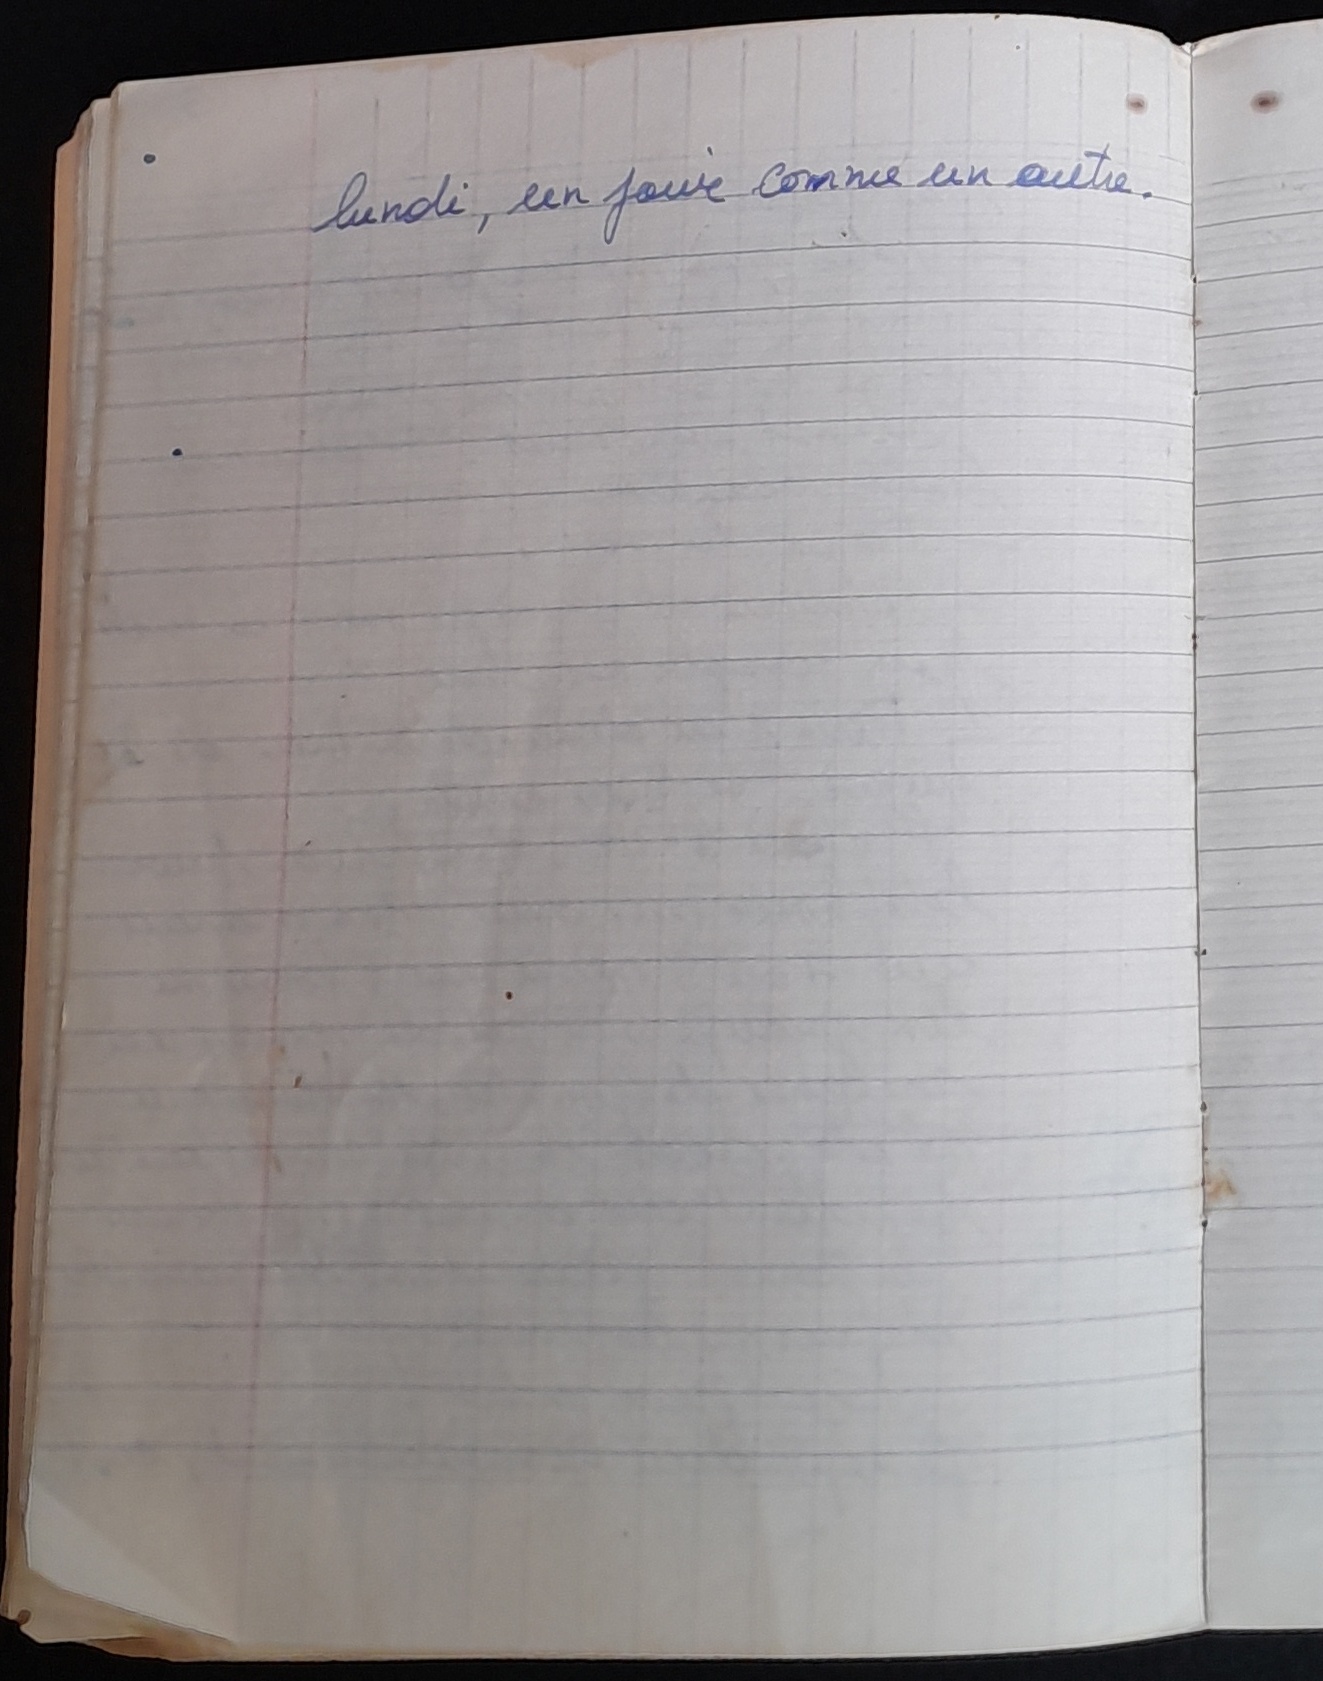 lundi, un jour comme un autre.